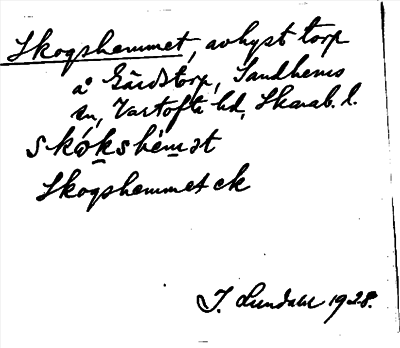 Skogshemmet, avhyst torp
å Gårdstorp, Sandhems
sn, Vartofta hd, Skarab. l.
skókshèmət
Skogshemmet ek
I. Lundahl 1928.